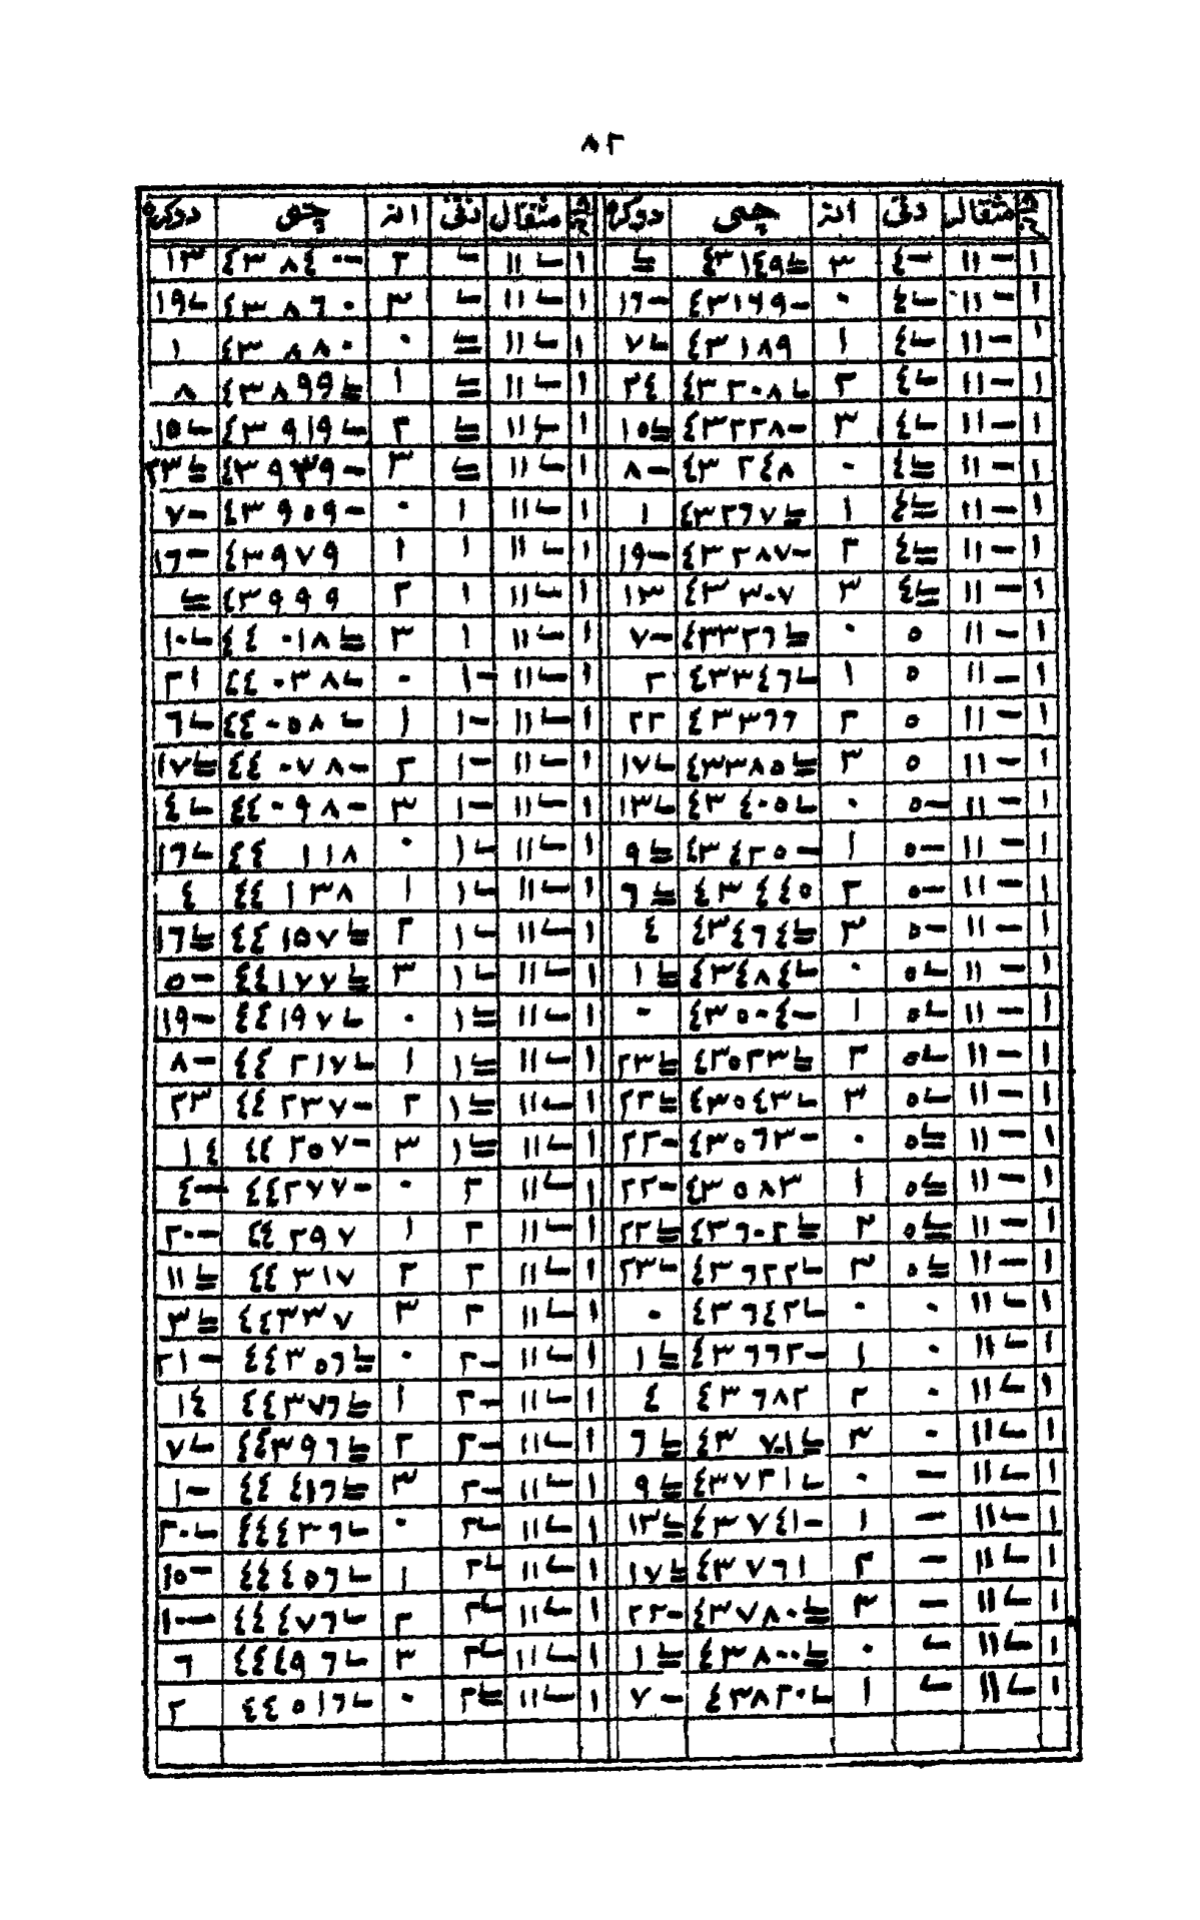 ٨٢
مثقال دنق انز چمی دوكره مثقال دنق انز چمی دوكره
١ ١١- ٤- ٣ ٤٣١٤٩ ١ ١١ ٢ ٤٣٨٤٠- ١٣
١ ١١- ٤ ٠ ٤٣١٦٩- ١٦- ١ ١١ ٣ ٤٣٨٦٠ ١٩
١ ١١- ٤ ١ ٤٣١٨٩ ٧ ١ ١١ ٠ ٤٣٨٨٠ ١
١ ١١- ٤ ٢ ٤٣٢٠٨ ٢٤ ١ ١١ ١ ٤٣٨٩٩ ٨
١ ١١- ٤ ٣ ٤٣٢٢٨- ١٥ ١ ١١ ٢ ٤٣٩١٩ ١٥
١ ١١- ٤ ٠ ٤٣٢٤٨ ٨- ١ ١١ ٣ ٤٣٩٣٩- ٢٣
١ ١١- ٤ ١ ٤٣٢٦٧ ١ ١ ١١ ١ ٠ ٤٣٩٥٩- ٧-
١ ١١- ٤ ٢ ٤٣٢٨٧- ١٩- ١ ١١ ١ ١ ٤٣٩٧٩ ١٦-
١ ١١- ٤ ٣ ٤٣٣٠٧ ١٣ ١ ١١ ١ ٢ ٤٣٩٩٩
١ ١١- ٥ ٠ ٤٣٣٢٦ ٧- ١ ١١ ١ ٣ ٤٤٠١٨ ١٠
١ ١١- ٥ ١ ٤٣٣٤٦ ٢ ١ ١١ ١- ٠ ٤٤٠٣٨ ٢١
١ ١١- ٥ ٢ ٤٣٣٦٦ ٢٢ ١ ١١ ١- ١ ٤٤٠٥٨ ٦
١ ١١- ٥ ٣ ٤٣٣٨٥ ١٧ ١ ١١ ١- ٢ ٤٤٠٧٨- ١٧
١ ١١- ٥- ٠ ٤٣٤٠٥ ١٣ ١ ١١ ١- ٣ ٤٤٠٩٨- ٤
١ ١١- ٥- ١ ٤٣٤٢٥- ٩ ١ ١١ ١ ٠ ٤٤١١٨ ١٦
١ ١١- ٥- ٢ ٤٣٤٤٥ ٦ ١ ١١ ١ ١ ٤٤١٣٨ ٤
١ ١١- ٥- ٣ ٤٣٤٦٤ ٤ ١ ١١ ١ ٢ ٤٤١٥٧ ١٦
١ ١١- ٥ ٠ ٤٣٤٨٤ ١ ١ ١١ ١ ٣ ٤٤١٧٧ ٥-
١ ١١- ٥ ١ ٤٣٥٠٤- ٠ ١ ١١ ١ ٠ ٤٤١٩٧ ١٩-
١ ١١- ٥ ٢ ٤٣٥٢٣ ٢٣ ١ ١١ ١ ١ ٤٤٢١٧ ٨-
١ ١١- ٥ ٣ ٤٣٥٤٣ ٢٢ ١ ١١ ١ ٢ ٤٤٢٣٧- ٢٣
١ ١١- ٥ ٠ ٤٣٥٦٣- ٢٢- ١ ١١ ١ ٣ ٤٤٢٥٧- ١٤
١ ١١- ٥ ١ ٤٣٥٨٣ ٢٢- ١ ١١ ٢ ٠ ٤٤٢٧٧- ٤-
١ ١١- ٥ ٢ ٤٣٦٠٢ ٢٢ ١ ١١ ٢ ١ ٤٤٢٩٧ ٢٠-
١ ١١- ٥ ٣ ٤٣٦٢٢ ٢٣ ١ ١١ ٢ ٢ ٤٤٣١٧ ١١
١ ١١ ٠ ٠ ٤٣٦٤٢ ٠ ١ ١١ ٢ ٣ ٤٤٣٣٧ ٣
١ ١١ ٠ ١ ٤٣٦٦٢- ١ ١ ١١ ٢- ٠ ٤٤٣٥٦ ٢١-
١ ١١ ٠ ٢ ٤٣٦٨٢ ٤ ١ ١١ ٢- ١ ٤٤٣٧٦ ١٤
١ ١١ ٠ ٣ ٤٣٧٠١ ٦ ١ ١١ ٢- ٢ ٤٤٣٩٦ ٧
١ ١١ - ٠ ٤٣٧٢١ ٩ ١ ١١ ٢- ٣ ٤٤٤١٦ ١-
١ ١١ - ١ ٤٣٧٤١- ١٣ ١ ١١ ٢ ٠ ٤٤٤٣٦ ٢٠
١ ١١ - ٢ ٤٣٧٦١ ١٧ ١ ١١ ٢ ١ ٤٤٤٥٦ ١٥-
١ ١١ - ٣ ٤٣٧٨٠ ٢٢- ١ ١١ ٢ ٢ ٤٤٤٧٦ ١٠-
١ ١١ ٠ ٤٣٨٠٠ ١ ١ ١١ ٢ ٣ ٤٤٤٩٦ ٦
١ ١١ ١ ٤٣٨٢٠ ٧- ١ ١١ ٢ ٠ ٤٤٥١٦ ٢